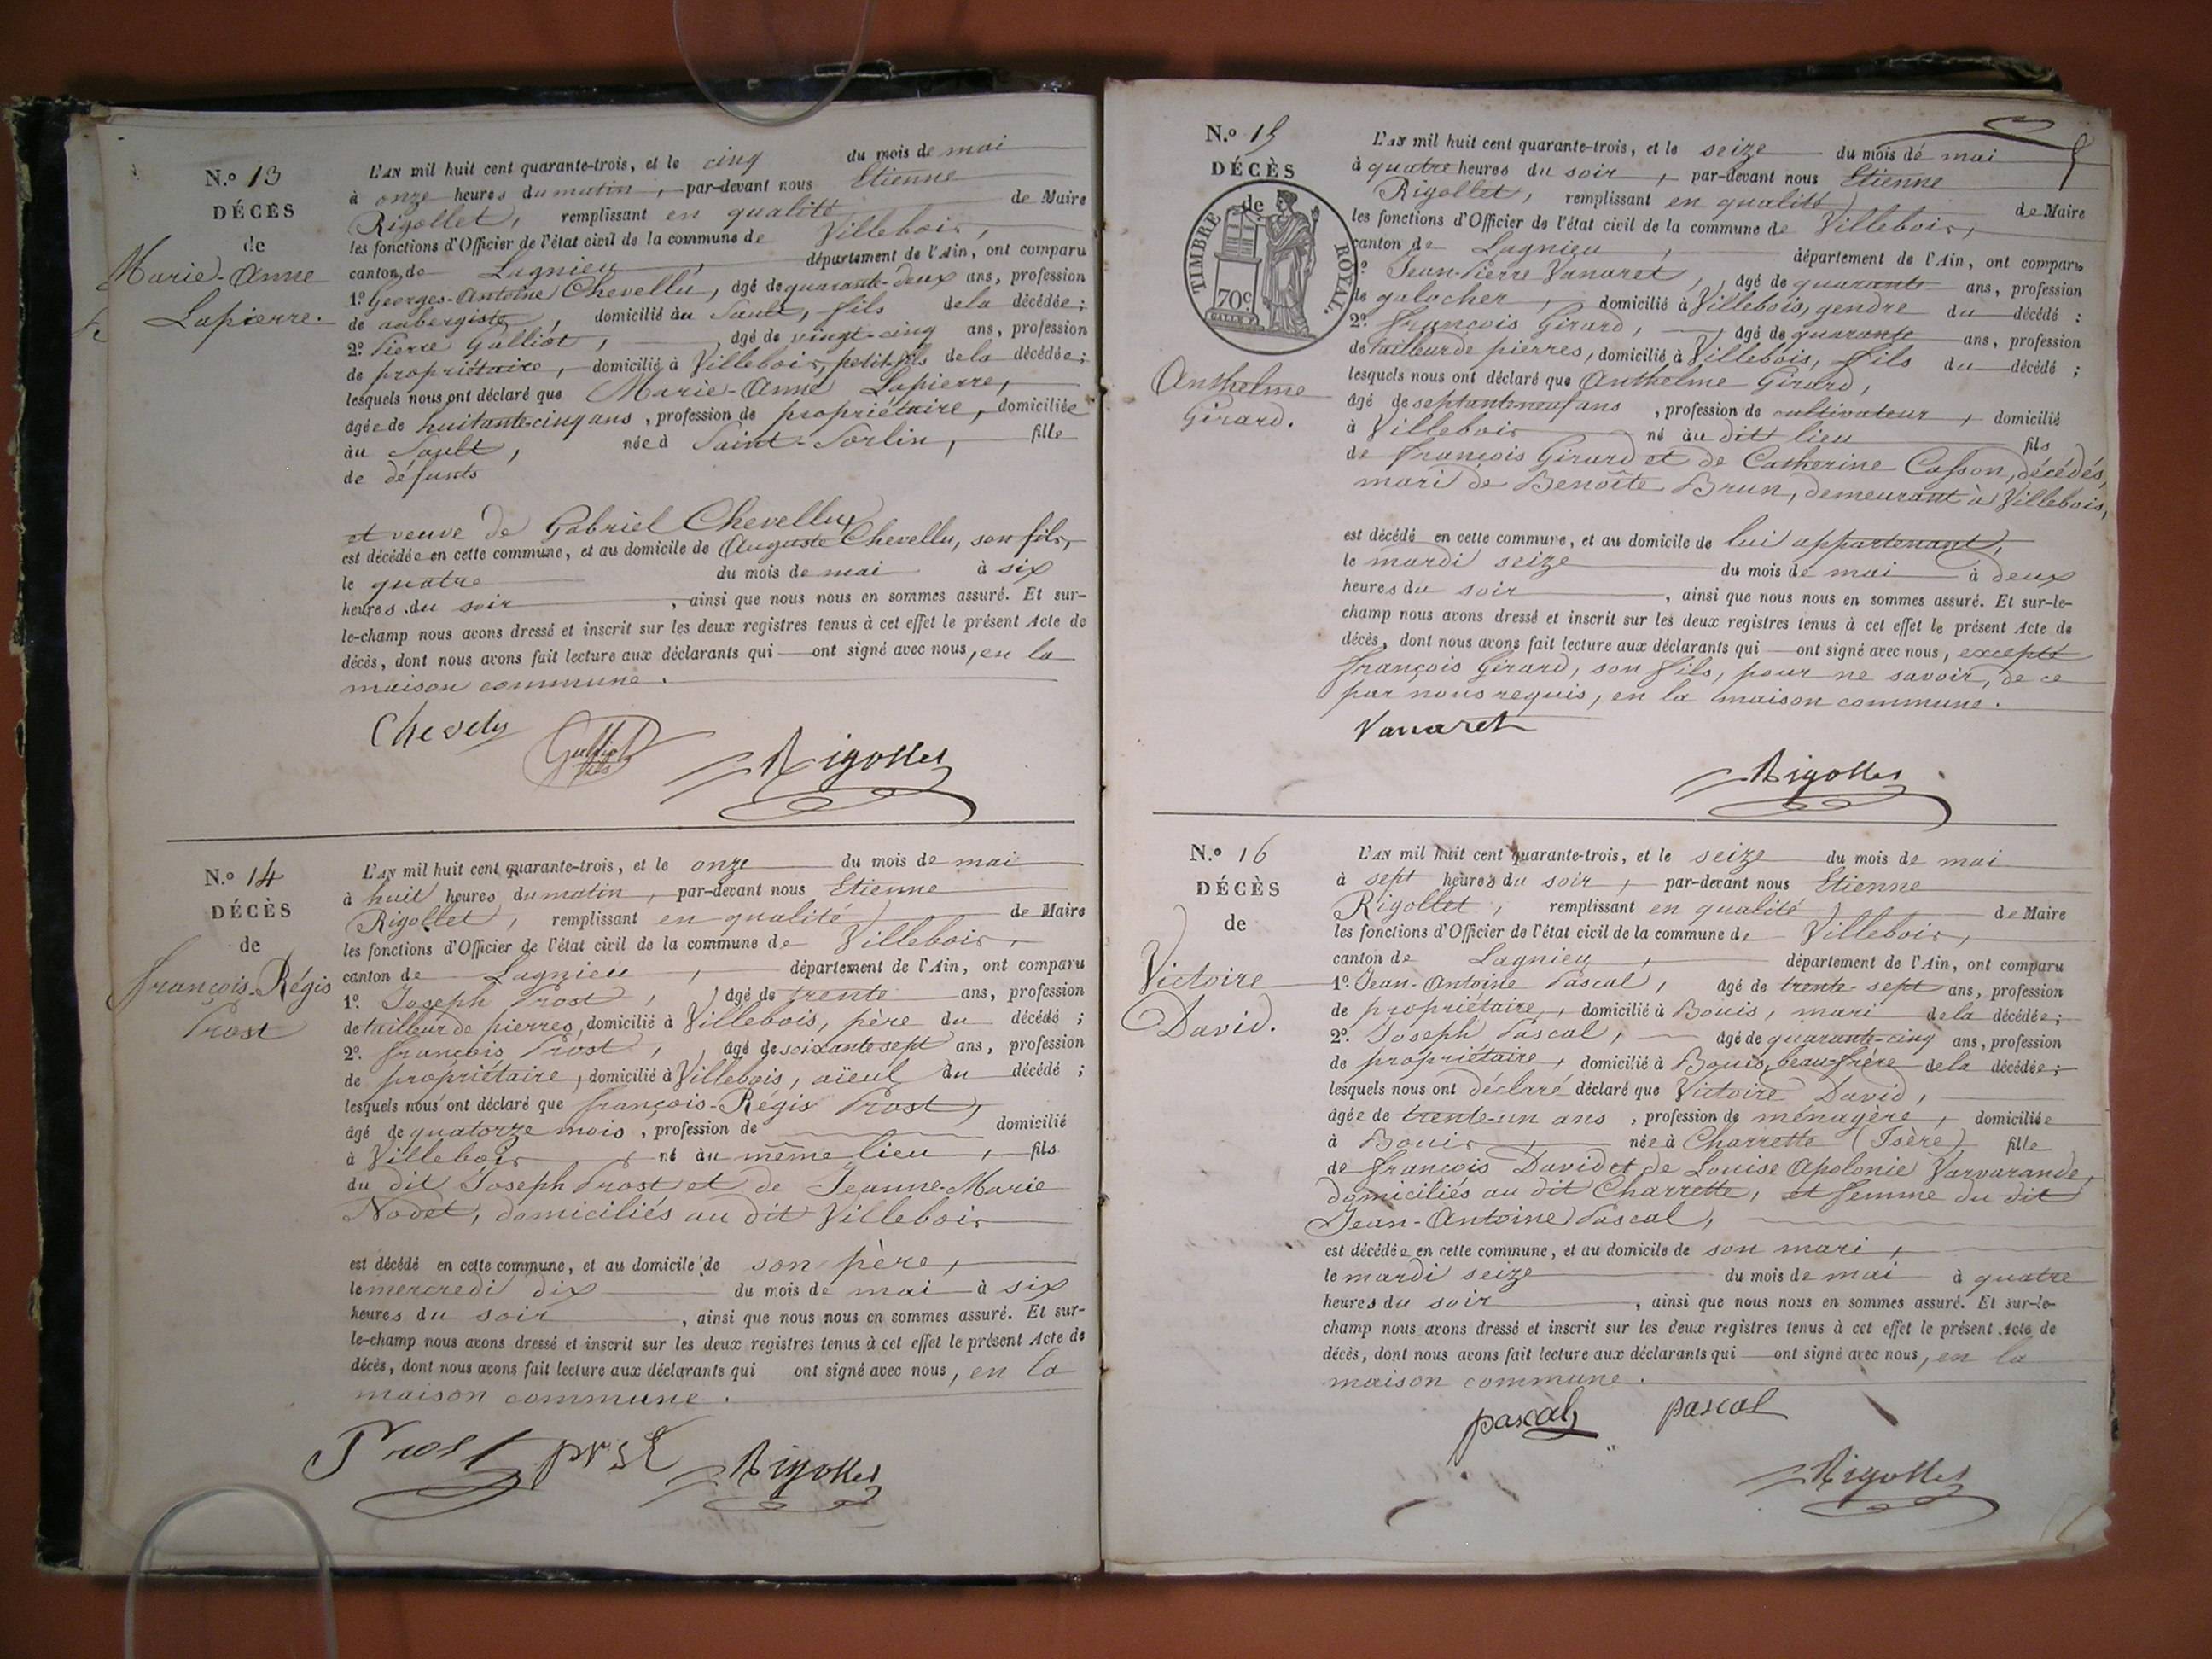 N.º 13
DÉCÈS
de
Marie-Anne
Lapierre.
L'AN mil huit cent quarante-trois, et le cinq du mois de mai
à onze heures du matin, par-devant nous Etienne
Rigollet, remplissant en qualité de Maire
les fonctions d'Officier de l'état civil de la commune de Villebois,
canton de Lagnieu, département de l'Ain, ont comparu
1º Georges-Antoine Chevellu, âgé de quarante-deux ans, profession
de aubergiste, domicilié au Sault, fils de la décédée;
2º Pierre Galliot, âgé de vingt-cinq ans, profession
de propriétaire, domicilié à Villebois, petit-fils de la décédée;
lesquels nous ont déclaré que Marie-Anne Lapierre,
âgée de huitante-cinq ans, profession de propriétaire, domiciliée
au Sault, née à Saint-Sorlin, fille
de défunts
et veuve de Gabriel Chevellu,
est décédée en cette commune, et au domicile de Auguste Chevellu, son fils,
le quatre du mois de mai à six
heures du soir, ainsi que nous nous en sommes assuré. Et sur-
le-champ nous avons dressé et inscrit sur les deux registres tenus à cet effet le présent Acte de
décès, dont nous avons fait lecture aux déclarants qui ont signé avec nous, en la
maison commune.
Chevelu Galliot fils Rigollet
N.º 14
DÉCÈS
de
François-Régis
Prost
L'AN mil huit cent quarante-trois, et le onze du mois de mai
à huit heures du matin, par-devant nous Etienne
Rigollet, remplissant en qualité de Maire
les fonctions d'Officier de l'état civil de la commune de Villebois,
canton de Lagnieu, département de l'Ain, ont comparu
1º. Joseph Prost, âgé de trente ans, profession
de tailleur de pierres, domicilié à Villebois, père du décédé;
2º. François Prost, âgé de soixante sept ans, profession
de propriétaire, domicilié à Villebois, aïeul du décédé;
lesquels nous ont déclaré que François-Régis Prost,
âgé de quatorze mois, profession de domicilié
à Villebois, né au même lieu, fils
du dit Joseph Prost et de Jeanne-Marie
Nodet, domiciliés au dit Villebois
est décédé en cette commune, et au domicile de son père,
le mercredi dix du mois de mai à six
heures du soir, ainsi que nous nous en sommes assuré. Et sur-
le-champ nous avons dressé et inscrit sur les deux registres tenus à cet effet le présent Acte de
décès, dont nous avons fait lecture aux déclarants qui ont signé avec nous, en la
maison commune.
Prost prost Rigollet
N.º 15
DÉCÈS
de
TIMBRE ROYAL.
70c.
Anthelme
Girard.
L'AN mil huit cent quarante-trois, et le seize du mois de mai
à quatre heures du soir, par-devant nous Etienne
Rigollet, remplissant en qualité de Maire
les fonctions d'Officier de l'état civil de la commune de Villebois,
canton de Lagnieu, département de l'Ain, ont comparu
1º Jean-Pierre Vanaret, âgé de quarante ans, profession
de galocher, domicilié à Villebois, gendre du décédé:
2º. François Girard, âgé de quarante ans, profession
de tailleur de pierres, domicilié à Villebois, fils du décédé;
lesquels nous ont déclaré que Anthelme Girard,
âgé de septante neuf ans, profession de cultivateur, domicilié
à Villebois né au dit lieu fils
de François Girard et de Catherine Casson, décédés,
mari de Benoîte Brun, demeurant à Villebois,
est décédé en cette commune, et au domicile de lui appartenant,
le mardi seize du mois de mai à deux
heures du soir, ainsi que nous nous en sommes assuré. Et sur-le-
champ nous avons dressé et inscrit sur les deux registres tenus à cet effet le présent Acte de
décès, dont nous avons fait lecture aux déclarants qui ont signé avec nous, excepté
François Girard, son fils, pour ne savoir, de ce
par nous requis, en la maison commune.
Vanaret
Rigollet
N.º 16
DÉCÈS
de
Victoire
David.
L'AN mil huit cent quarante-trois, et le seize du mois de mai
à sept heures du soir, par-devant nous Etienne
Rigollet, remplissant en qualité de Maire
les fonctions d'Officier de l'état civil de la commune de Villebois,
canton de Lagnieu, département de l'Ain, ont comparu
1º. Jean-Antoine Pascal, âgé de trente-sept ans, profession
de propriétaire, domicilié à Bouis, mari de la décédée;
2º. Joseph Pascal, âgé de quarante-cinq ans, profession
de propriétaire, domicilié à Bouis, beau-frère de la décédée;
lesquels nous ont déclaré déclaré que Victoire David,
âgée de trente-un ans, profession de ménagère, domiciliée
à Bouis, née à Charrette (Isère) fille
de François David et de Louise Apolonie Varvarande,
domiciliés au dit Charrette, et femme du dit
Jean-Antoine Pascal,
est décédée en cette commune, et au domicile de son mari,
le mardi seize du mois de mai à quatre
heures du soir, ainsi que nous nous en sommes assuré. Et sur-le-
champ nous avons dressé et inscrit sur les deux registres tenus à cet effet le présent Acte de
décès, dont nous avons fait lecture aux déclarants qui ont signé avec nous, en la
maison commune.
pascal pascal
Rigollet